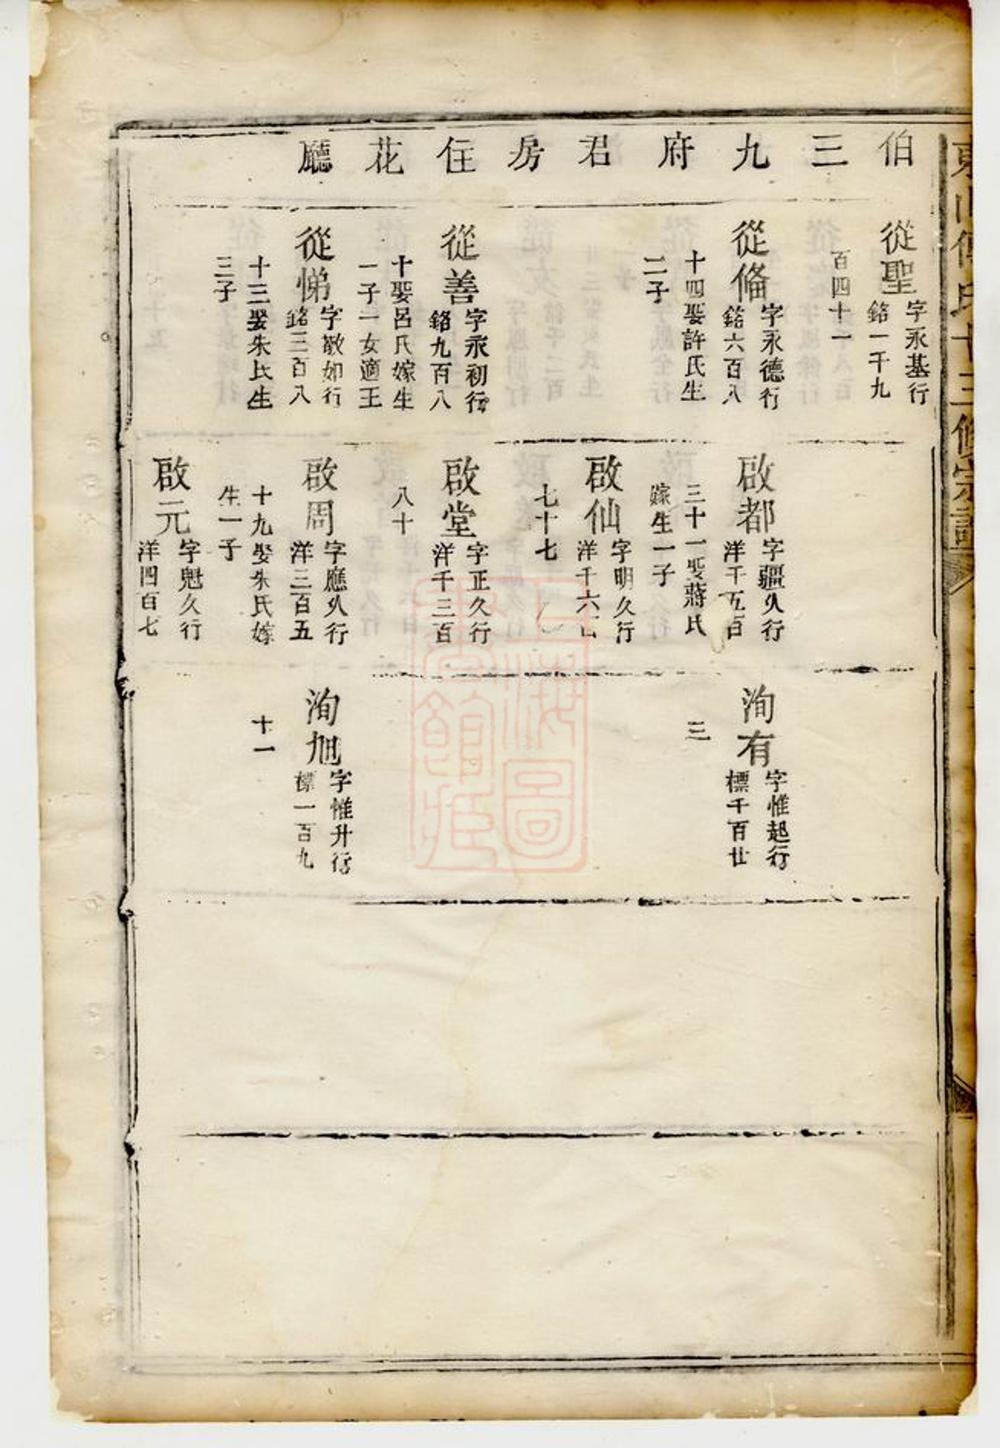 伯三九府君房住花廳
從聖
字永基行
銘一千九
百四十一
從俻
字永德行
銘六百八
十四娶許氏生
二子
從善
字永初行
銘九百八
十娶呂氏嫁生
一子一女適王
從悌
字敬如行
銘三百八
十三娶朱氏生
三子
啟都
字疆久行
洋千五百
三十一娶蔣氏
嫁生一子
啟仙
字明久行
洋千六百
七十七
啟堂
字正久行
洋千三百
八十
啟周
字應久行
洋三百五
十九娶朱氏嫁
生一子
啟元
字魁久行
洋四百七
洵有
字惟起行
標千百廿
三
洵旭
字惟升行
標一百九
十一
上海圖書館藏